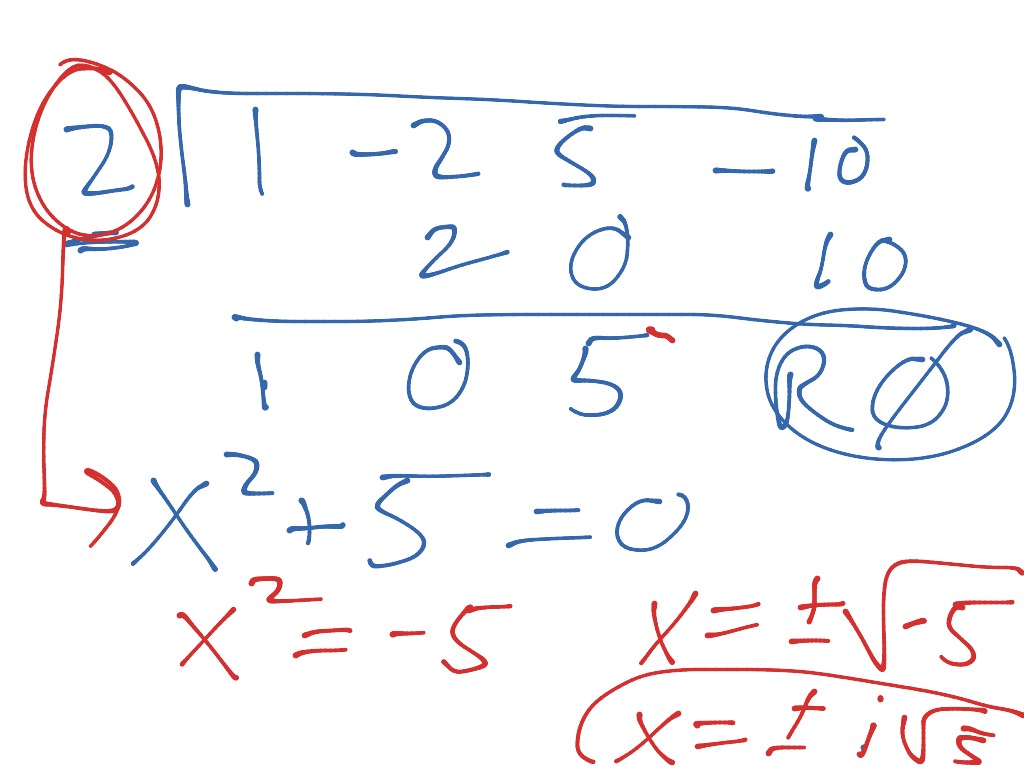 2 1 -2 5 -10
2 0 10
1 0 5 R0
x² + 5 = 0
x² = -5 x = ±√-5
x = ±i√5